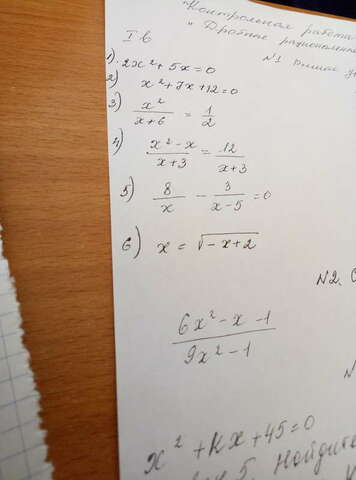 "Контрольная работа
I в "Дробные рациональн
N1
1) 2x² + 5x = 0
2) x² + 7x + 12 = 0
3) x²/(x+6) = 1/2
4) (x² - x)/(x+3) = 12/(x+3)
5) 8/x - 3/(x-5) = 0
6) x = √(-x+2)
N2.
(6x² - x - 1)/(9x² - 1)
N
x² + kx + 45 = 0
5. Найдите